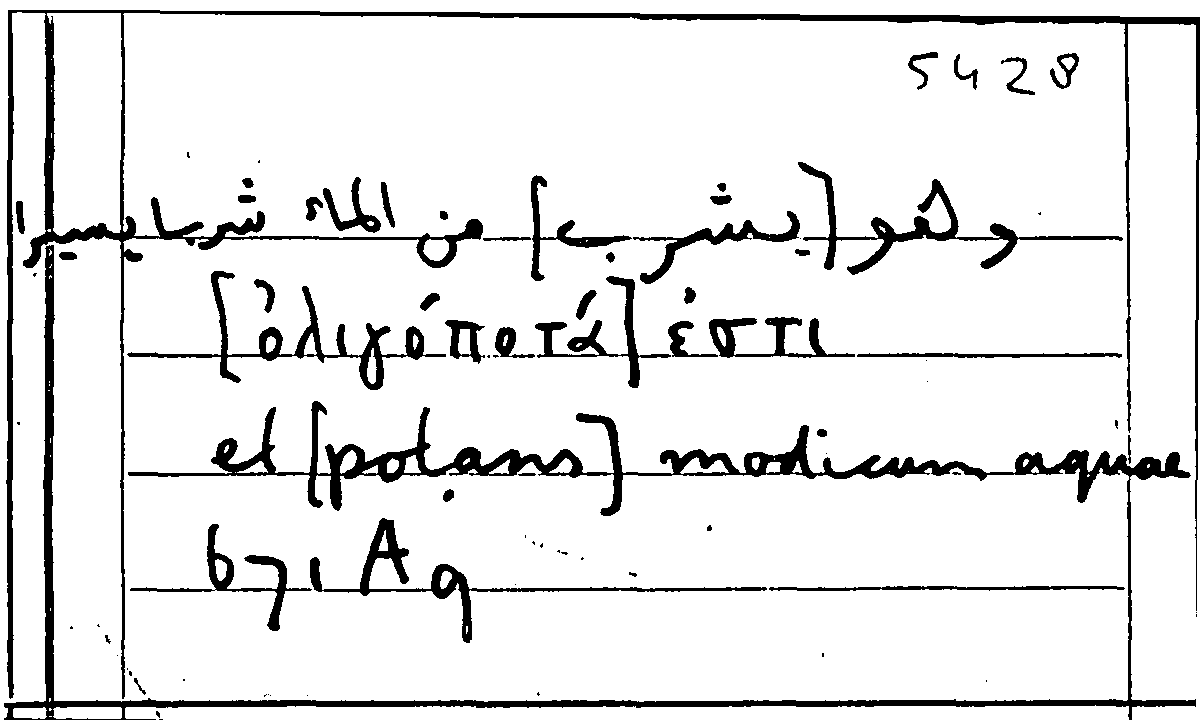 5428
وهو [يشرب] من الماء شربا يسيرا
[ὀλιγόποτά] ἐστι
et [potans] modicum aquae
671 A 9